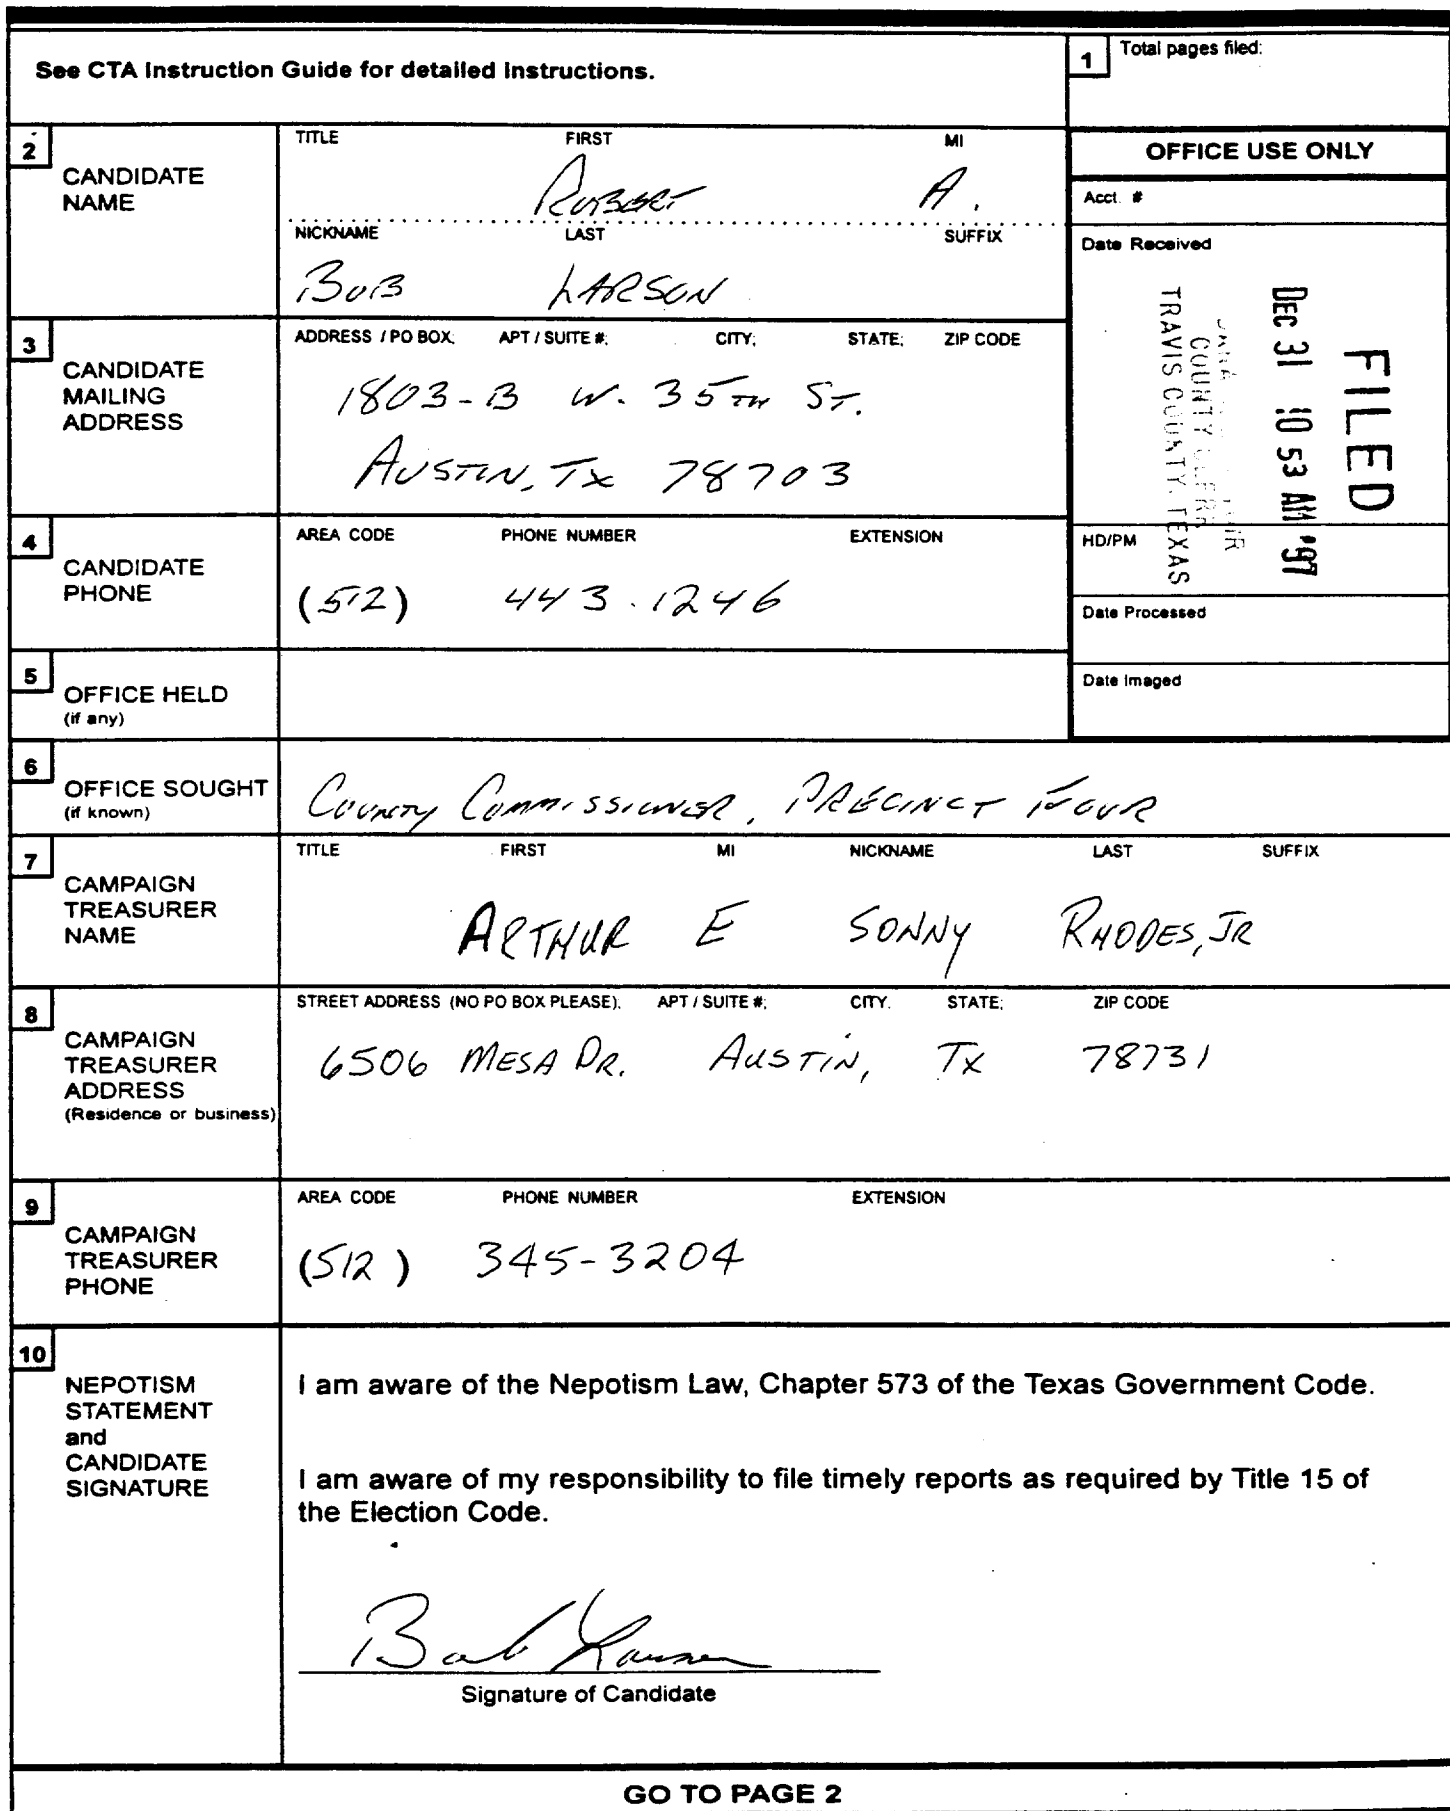 See CTA Instruction Guide for detailed Instructions.
1 Total pages filed:
2 CANDIDATE NAME
TITLE FIRST MI
ROBERT A.
NICKNAME LAST SUFFIX
BOB LARSON
OFFICE USE ONLY
Acct. #
Date Received
FILED
DEC 31 10 53 AM '97
COUNTY CLERK
TRAVIS COUNTY, TEXAS
HD/PM
Date Processed
Date Imaged
3 CANDIDATE MAILING ADDRESS
ADDRESS / PO BOX; APT / SUITE #; CITY; STATE; ZIP CODE
1803-B W. 35TH ST.
AUSTIN, TX 78703
4 CANDIDATE PHONE
AREA CODE PHONE NUMBER EXTENSION
(512) 443.1246
5 OFFICE HELD
(if any)
6 OFFICE SOUGHT
(if known)
COUNTY COMMISSIONER, PRECINCT FOUR
7 CAMPAIGN TREASURER NAME
TITLE FIRST MI NICKNAME LAST SUFFIX
ARTHUR E SONNY RHODES, JR
8 CAMPAIGN TREASURER ADDRESS
(Residence or business)
STREET ADDRESS (NO PO BOX PLEASE); APT / SUITE #; CITY. STATE; ZIP CODE
6506 MESA DR. AUSTIN, TX 78731
9 CAMPAIGN TREASURER PHONE
AREA CODE PHONE NUMBER EXTENSION
(512) 345-3204
10 NEPOTISM STATEMENT and CANDIDATE SIGNATURE
I am aware of the Nepotism Law, Chapter 573 of the Texas Government Code.
I am aware of my responsibility to file timely reports as required by Title 15 of
the Election Code.
Bob Larson
Signature of Candidate
GO TO PAGE 2